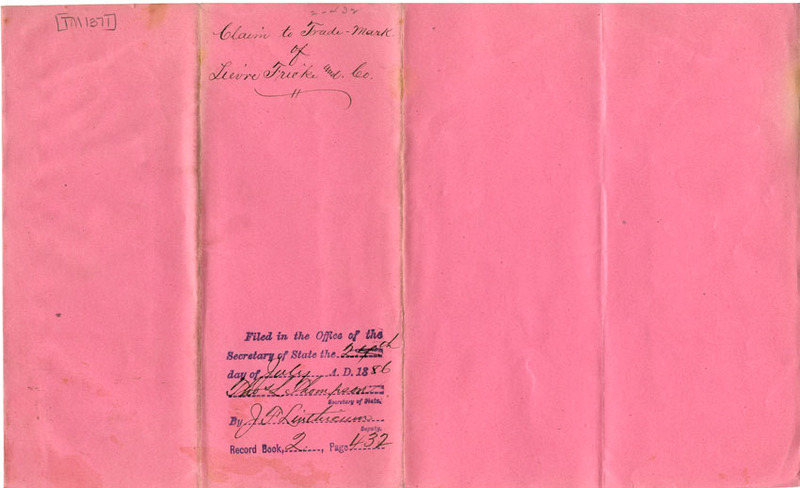 TM1371
2 432
Claim to Trade-Mark
of
Lievre Fricke and Co.
Filed in the Office of the
Secretary of State the 24th
day of July A. D. 1886
Thos L. Thompson
Secretary of State.
By J. F. Linthicum
Deputy.
Record Book, 2, Page 432